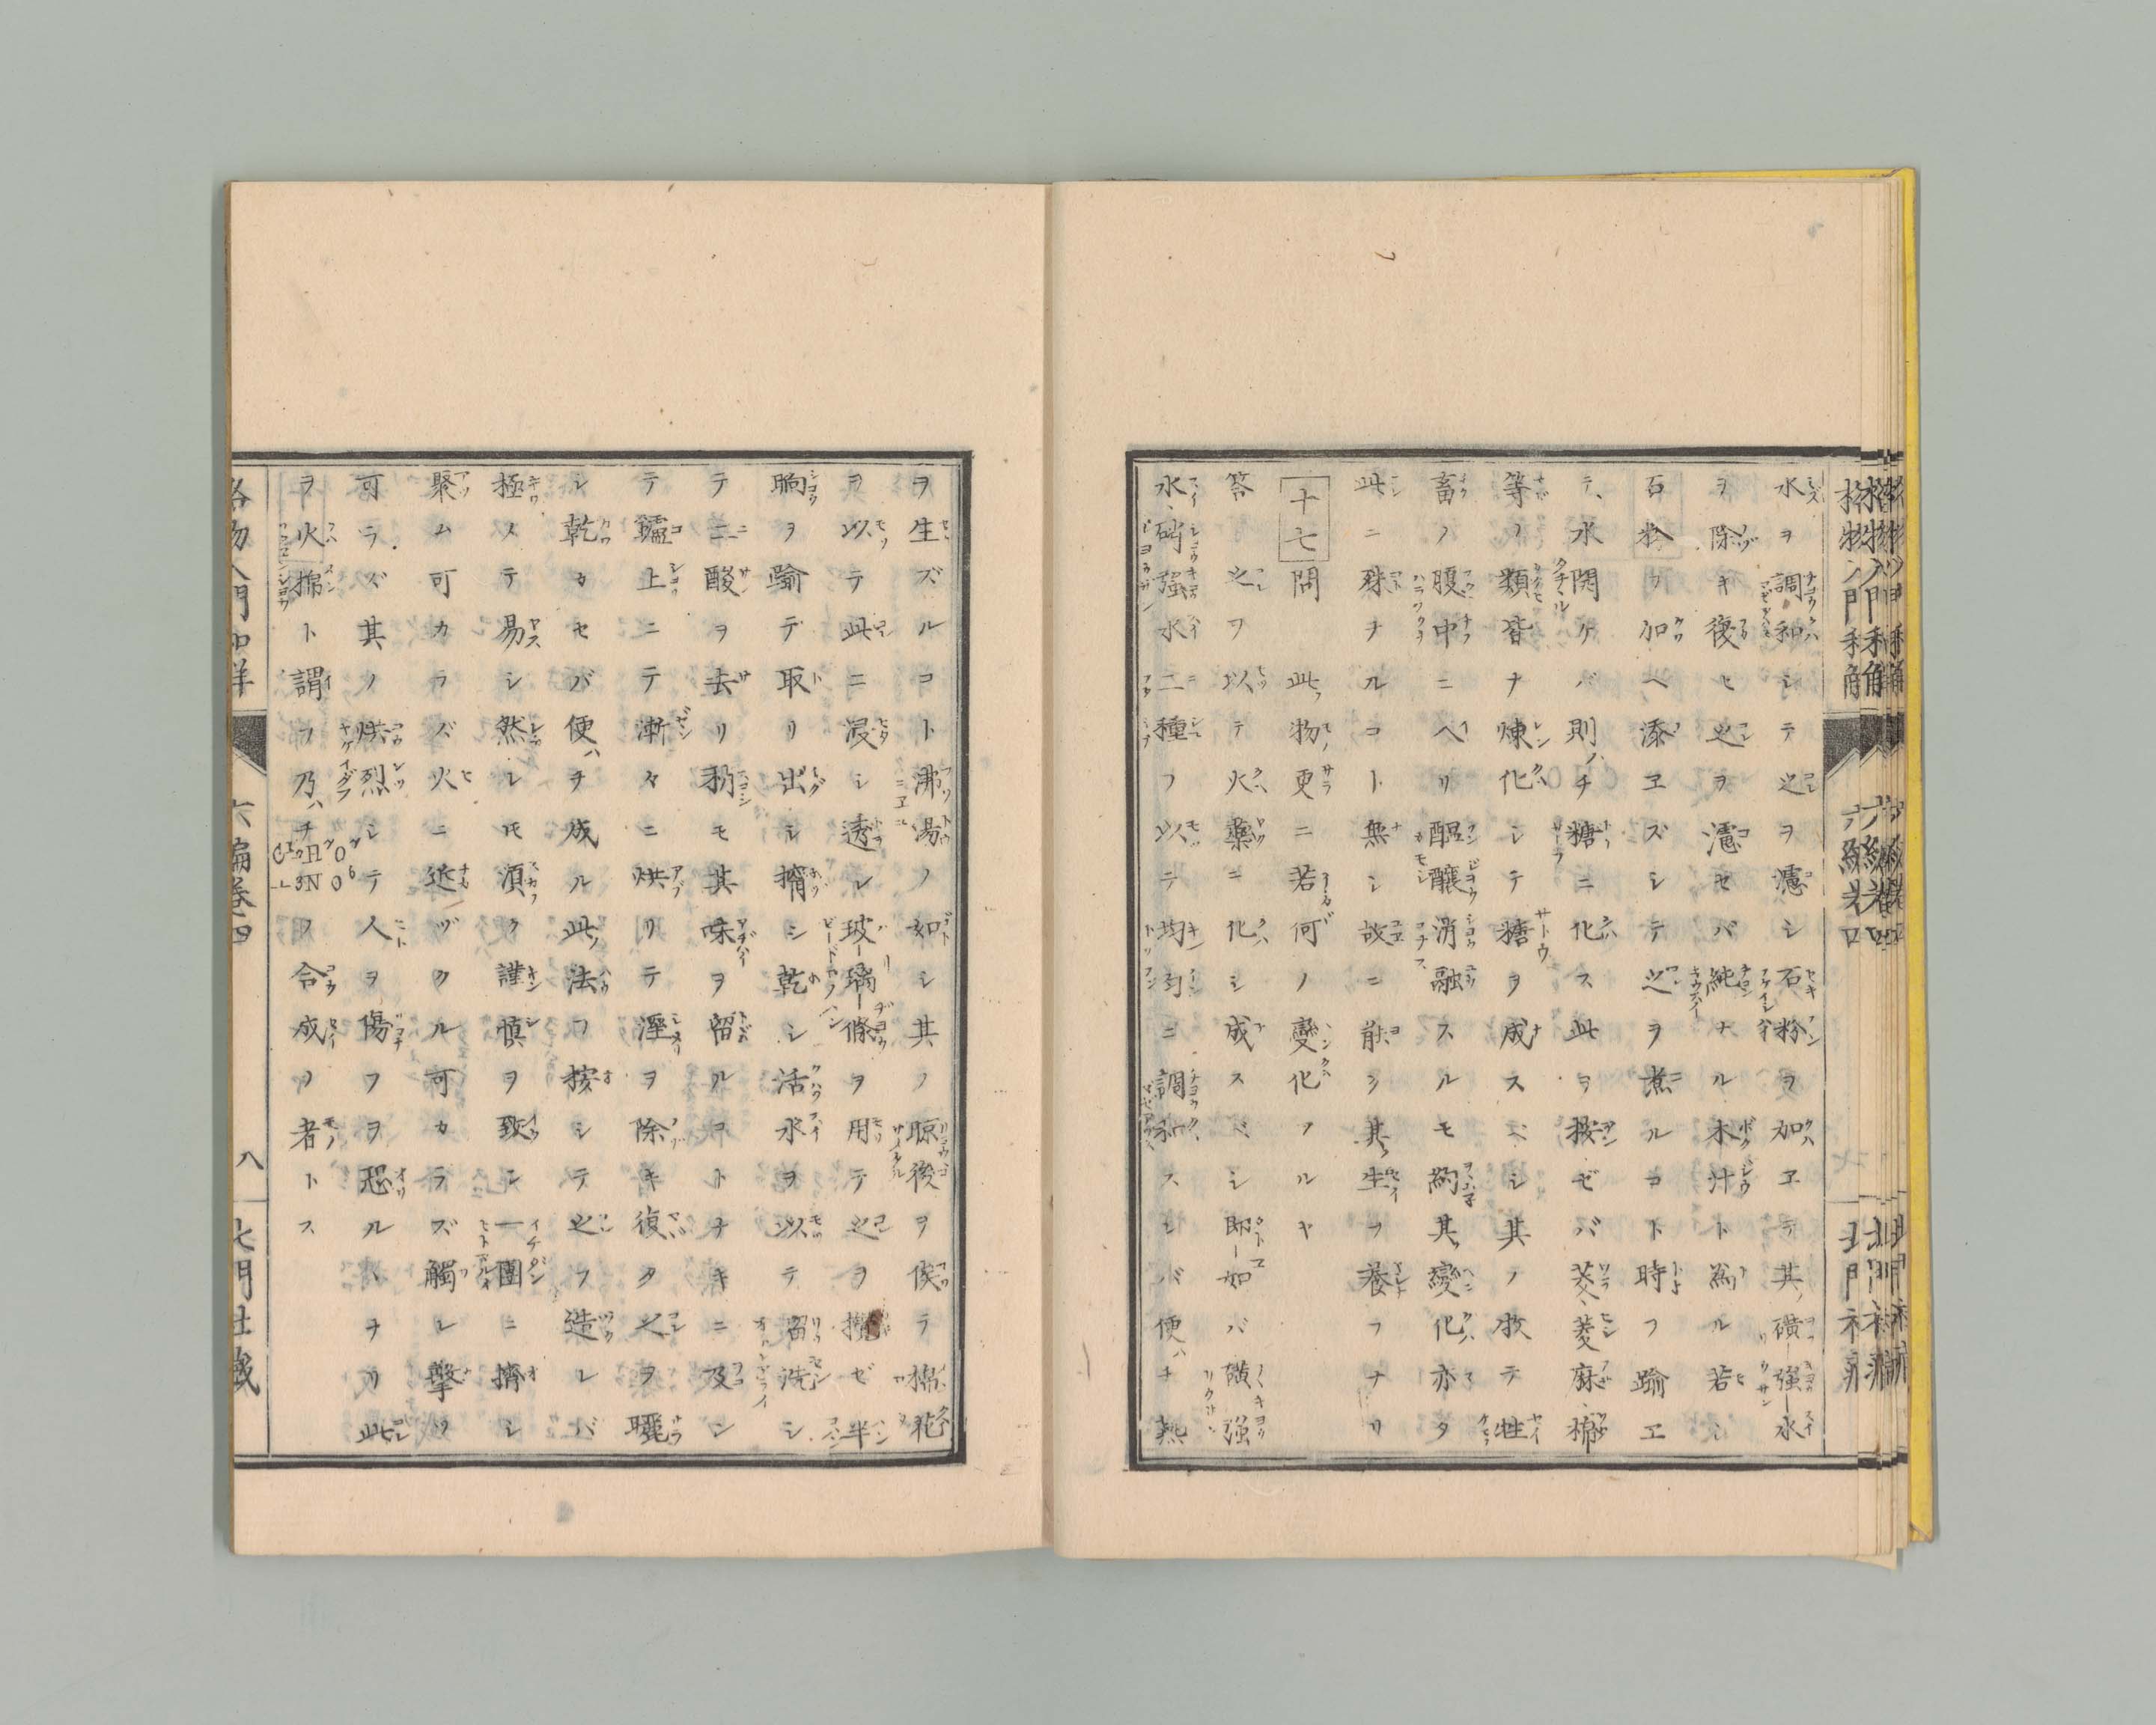 水ヲ調和シテ之ヲ濾シ石粉ヲ加ヱテ其ノ磺強水
ヲ除キ復ヒ之ヲ濾セバ純ナル木汁ト為ル若シ
石粉ヲ加ヘ添ヱズシテ之ヲ煮ルコト時ヲ踰ヱ
テ、水開ケバ則ハチ糖ニ化ス此ヲ按ゼバ茭、菱、麻、棉
等ノ類皆ナ煉化シテ糖ヲ成スベシ其ノ牧テ牲
畜ノ腹中ニ入リ醖釀消融スルモ約其ノ變化亦タ
此ニ殊ナルコト無シ故ニ能ク其ノ生ヲ養フナリ
十七 問 此ノ物更ニ若何ノ變化アルヤ
答 之ヲ以テ火藥ニ化シ成スベシ即如バ磺強
水、硝強水二種ヲ以テ均勻ニ調和スレバ便ハチ熱
ヲ生ズルコト沸湯ノ如シ其ノ晾後ヲ俟テ棉花
ヲ以テ此ニ浸シ透シ玻璃條ヲ用テ之ヲ攪ゼ半
晌ヲ踰デ取リ出シ擠シ乾シ活水ヲ以テ溜洗シ
テニ酸ヲ去リ稍モ其味ヲ留ルコトナキニ及ン
テ鑪上ニテ漸々ニ烘リテ溼ヲ除キ復タ之ヲ曬
シ乾カセバ便ハチ成ル此ノ法ヲ按シテ之ヲ造レバ
極メテ易シ然レモ須ク謹慎ヲ致シ一團ニ擠シ
聚ム可カラズ火ニ近ヅクル可カラズ觸レ擊ツ
可ラズ其ノ烘烈シテ人ヲ傷フヲ恐ルヽナリ此
ヲ火棉ト謂フ乃ハチ
ノ合成ノ者トス
六編卷四
八